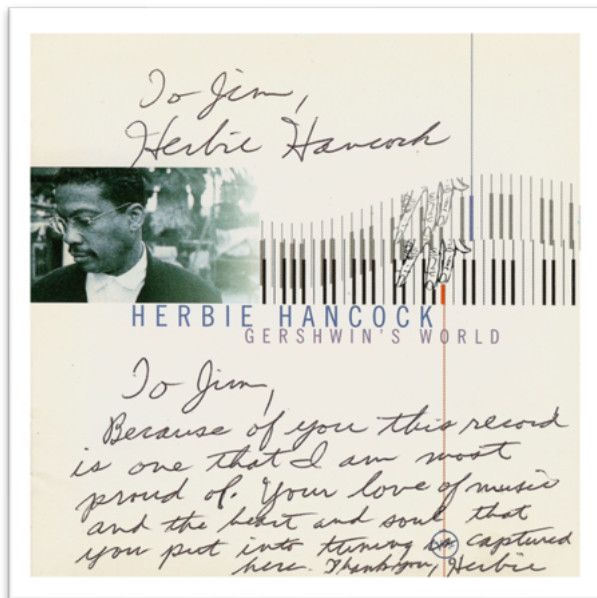 To Jim,
Herbie Hancock
HERBIE HANCOCK
GERSHWIN'S WORLD
To Jim,
Because of you this record
is one that I am most
proud of. Your love of music
and the heart and soul that
you put into tuning is captured
here. Thank you, Herbie